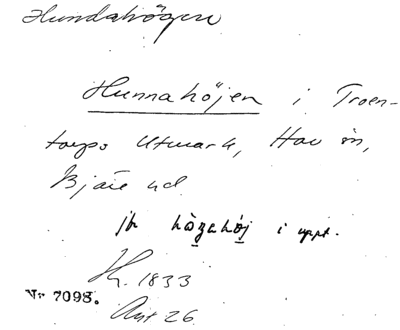 Hundahögen
Hunnahöjen i Troen-
torps Utmark, Hov sn,
Bjäre hd
jfr i uppt.
Hz. 1833
Nr 7098.
Ant 26